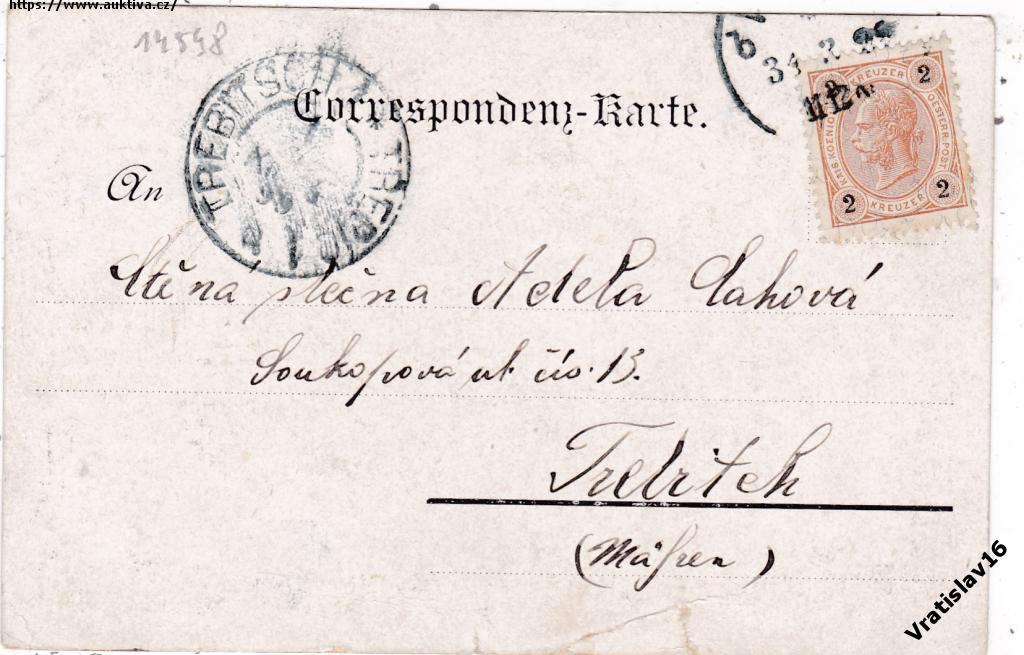 https://www.auktiva.cz/
14598
TREBITSCH * TŘEBÍČ
Correspondenz-Karte.
2 KREUZER 2
KAIS. KOENIGL. OESTERR. POST
2 KREUZER 2
An
Ctěná slečna Adela
Soukopová ul. čís. 13.
Trebitch
(Mähren)
Vratislav16